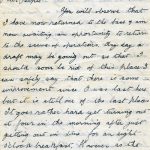 You will observe that
I have now returned to the base & am
now awaiting an opportunity to return
to the scene of operations. They say a
draft may be going out so that I
should soon be rid of this place. I
can safely say that there is some
improvement since I was last here
but it is still one of the last places
It goes rather hard just turning out
at four in the morning after just
getting out in time for an eight
o'clock breakfast. However as the